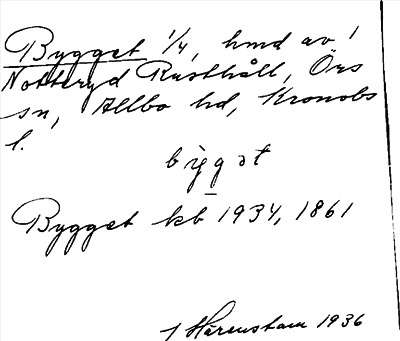 Bygget 1/4, hmd av 1
Notteryd Rusthåll, Örs
sn, Allbo hd, Kronobs
l.
bygət
Bygget kb 1934, 1861
J Hårenstam 1936